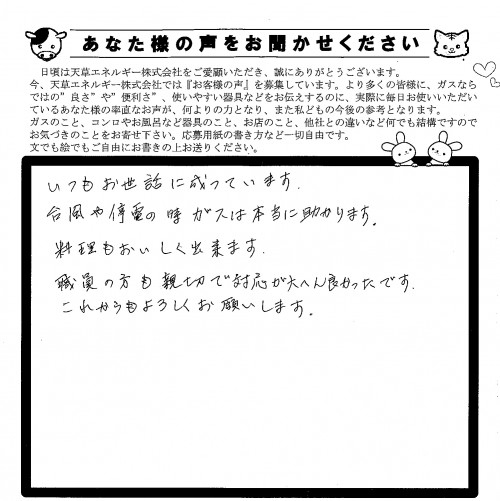 あなた様の声をお聞かせください
日頃は天草エネルギー株式会社をご愛顧いただき、誠にありがとうございます。
今、天草エネルギー株式会社では『お客様の声』を募集しています。より多くの皆様に、ガスなら
ではの”良さ”や”便利さ”、使いやすい器具などをお伝えするのに、実際に毎日お使いいただい
ているあなた様の率直なお声が、何よりの力となり、また私どもの今後の参考となります。
ガスのこと、コンロやお風呂など器具のこと、お店のこと、他社との違いなど何でも結構ですので
お気づきのことをお寄せ下さい。応募用紙の書き方など一切自由です。
文でも絵でもご自由にお書きの上お送りください。
いつもお世話に成っています.
台風や停電の時ガスは本当に助かります.
料理もおいしく出来ます.
職員の方も親切で対応が大へん良かったです.
これからもよろしくお願いします.